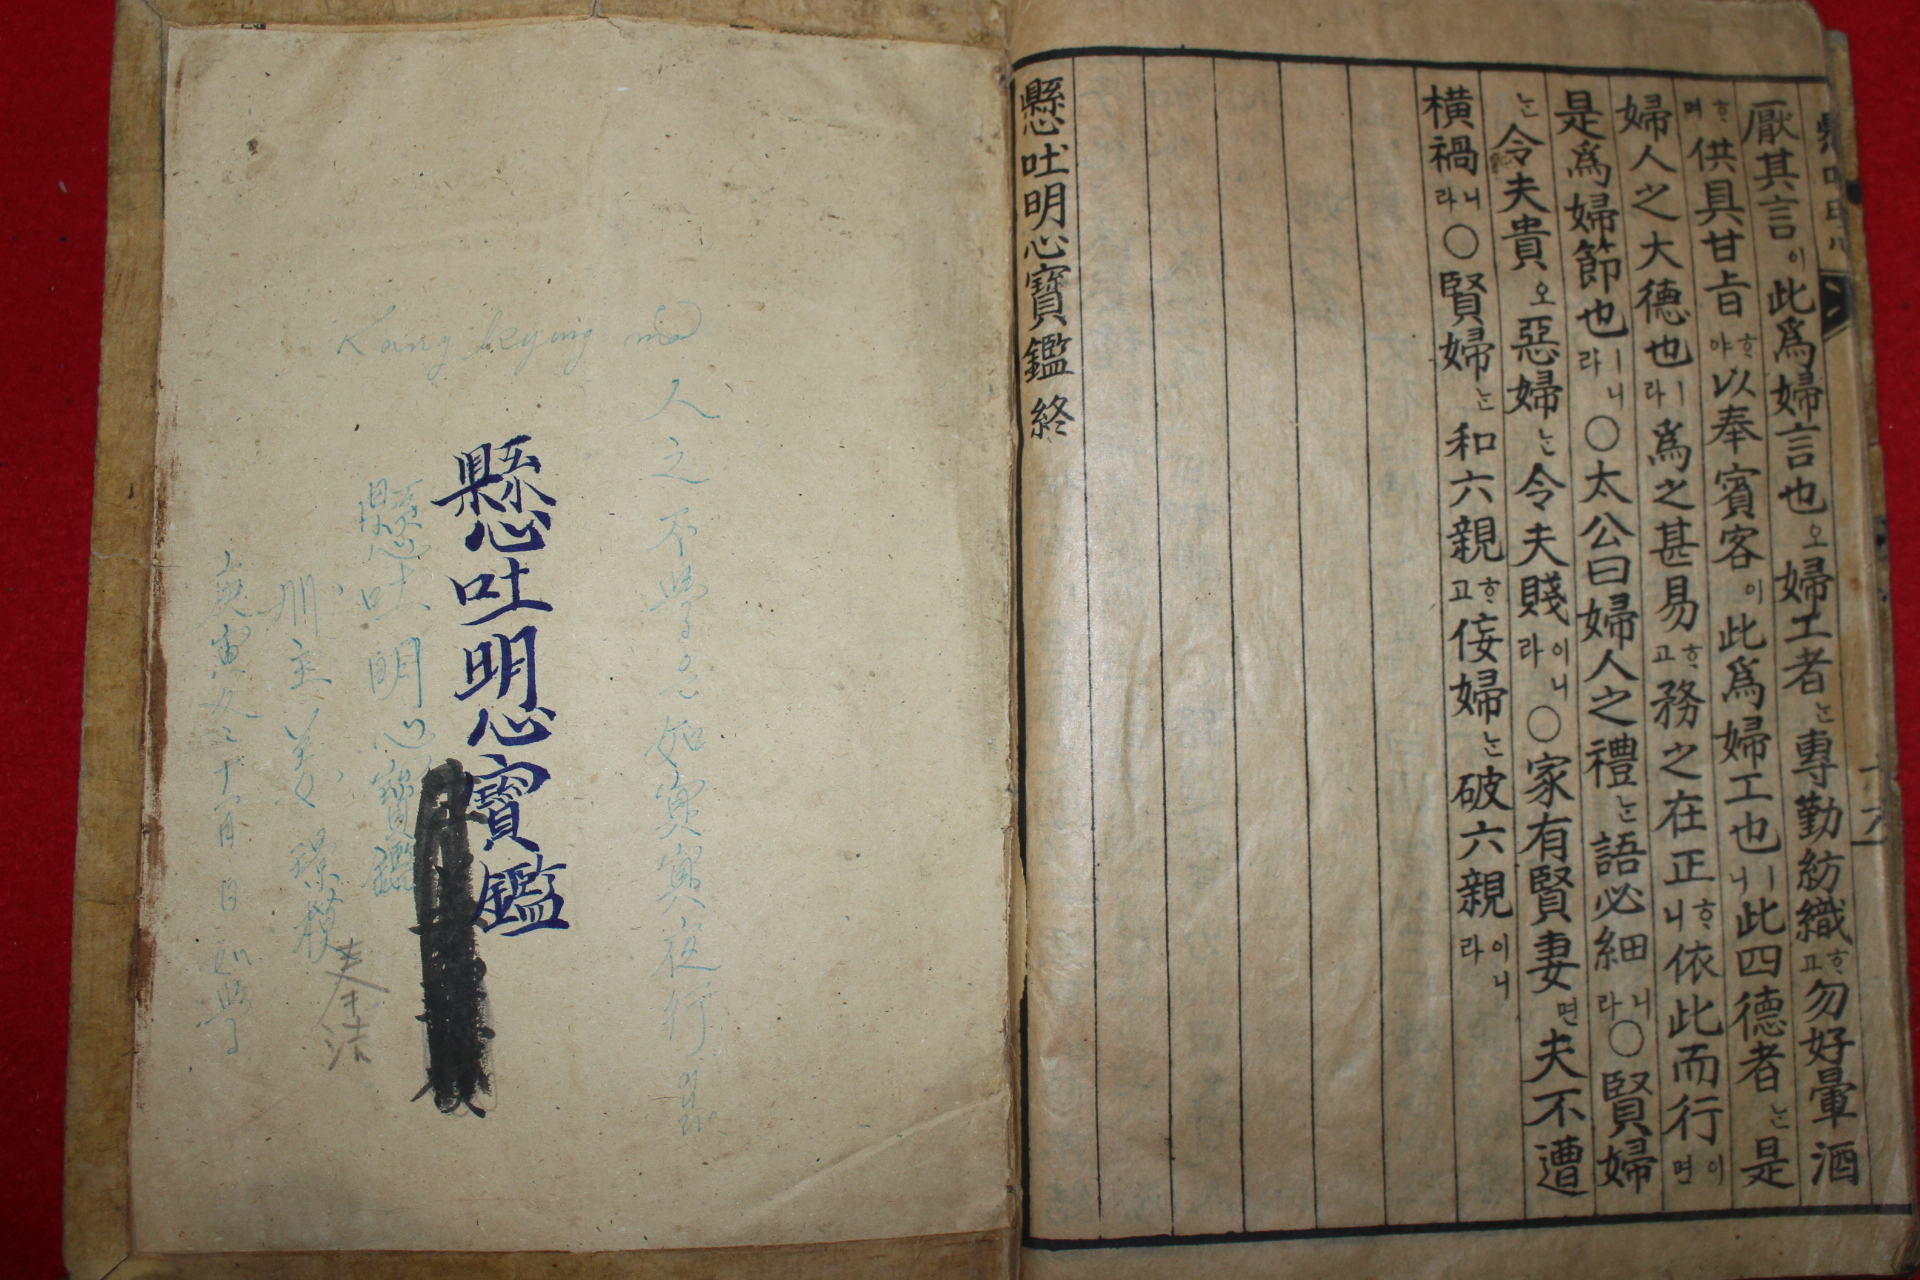 厭其言이此爲婦言也오婦工者는專勤紡織ᄒᆞ고勿好暈酒
ᄒᆞ며供具甘旨ᄒᆞ야以奉賓客이此爲婦工也ㅣ니此四德者는是
婦人之大德也ㅣ라爲之甚易ᄒᆞ고務之在正ᄒᆞ니依此而行이면
是爲婦節也ㅣ니라○太公曰婦人之禮는語必細니라○賢婦
는令夫貴오惡婦는令夫賤이니라○家有賢妻면夫不遭
橫禍니라○賢婦는和六親ᄒᆞ고侫婦는破六親이니라
懸吐明心寶鑑 終
Kang kyung
人之不學은如冥冥夜行이
懸吐明心寶鑑
懸吐明心寶鑑
庚寅 十一月 日